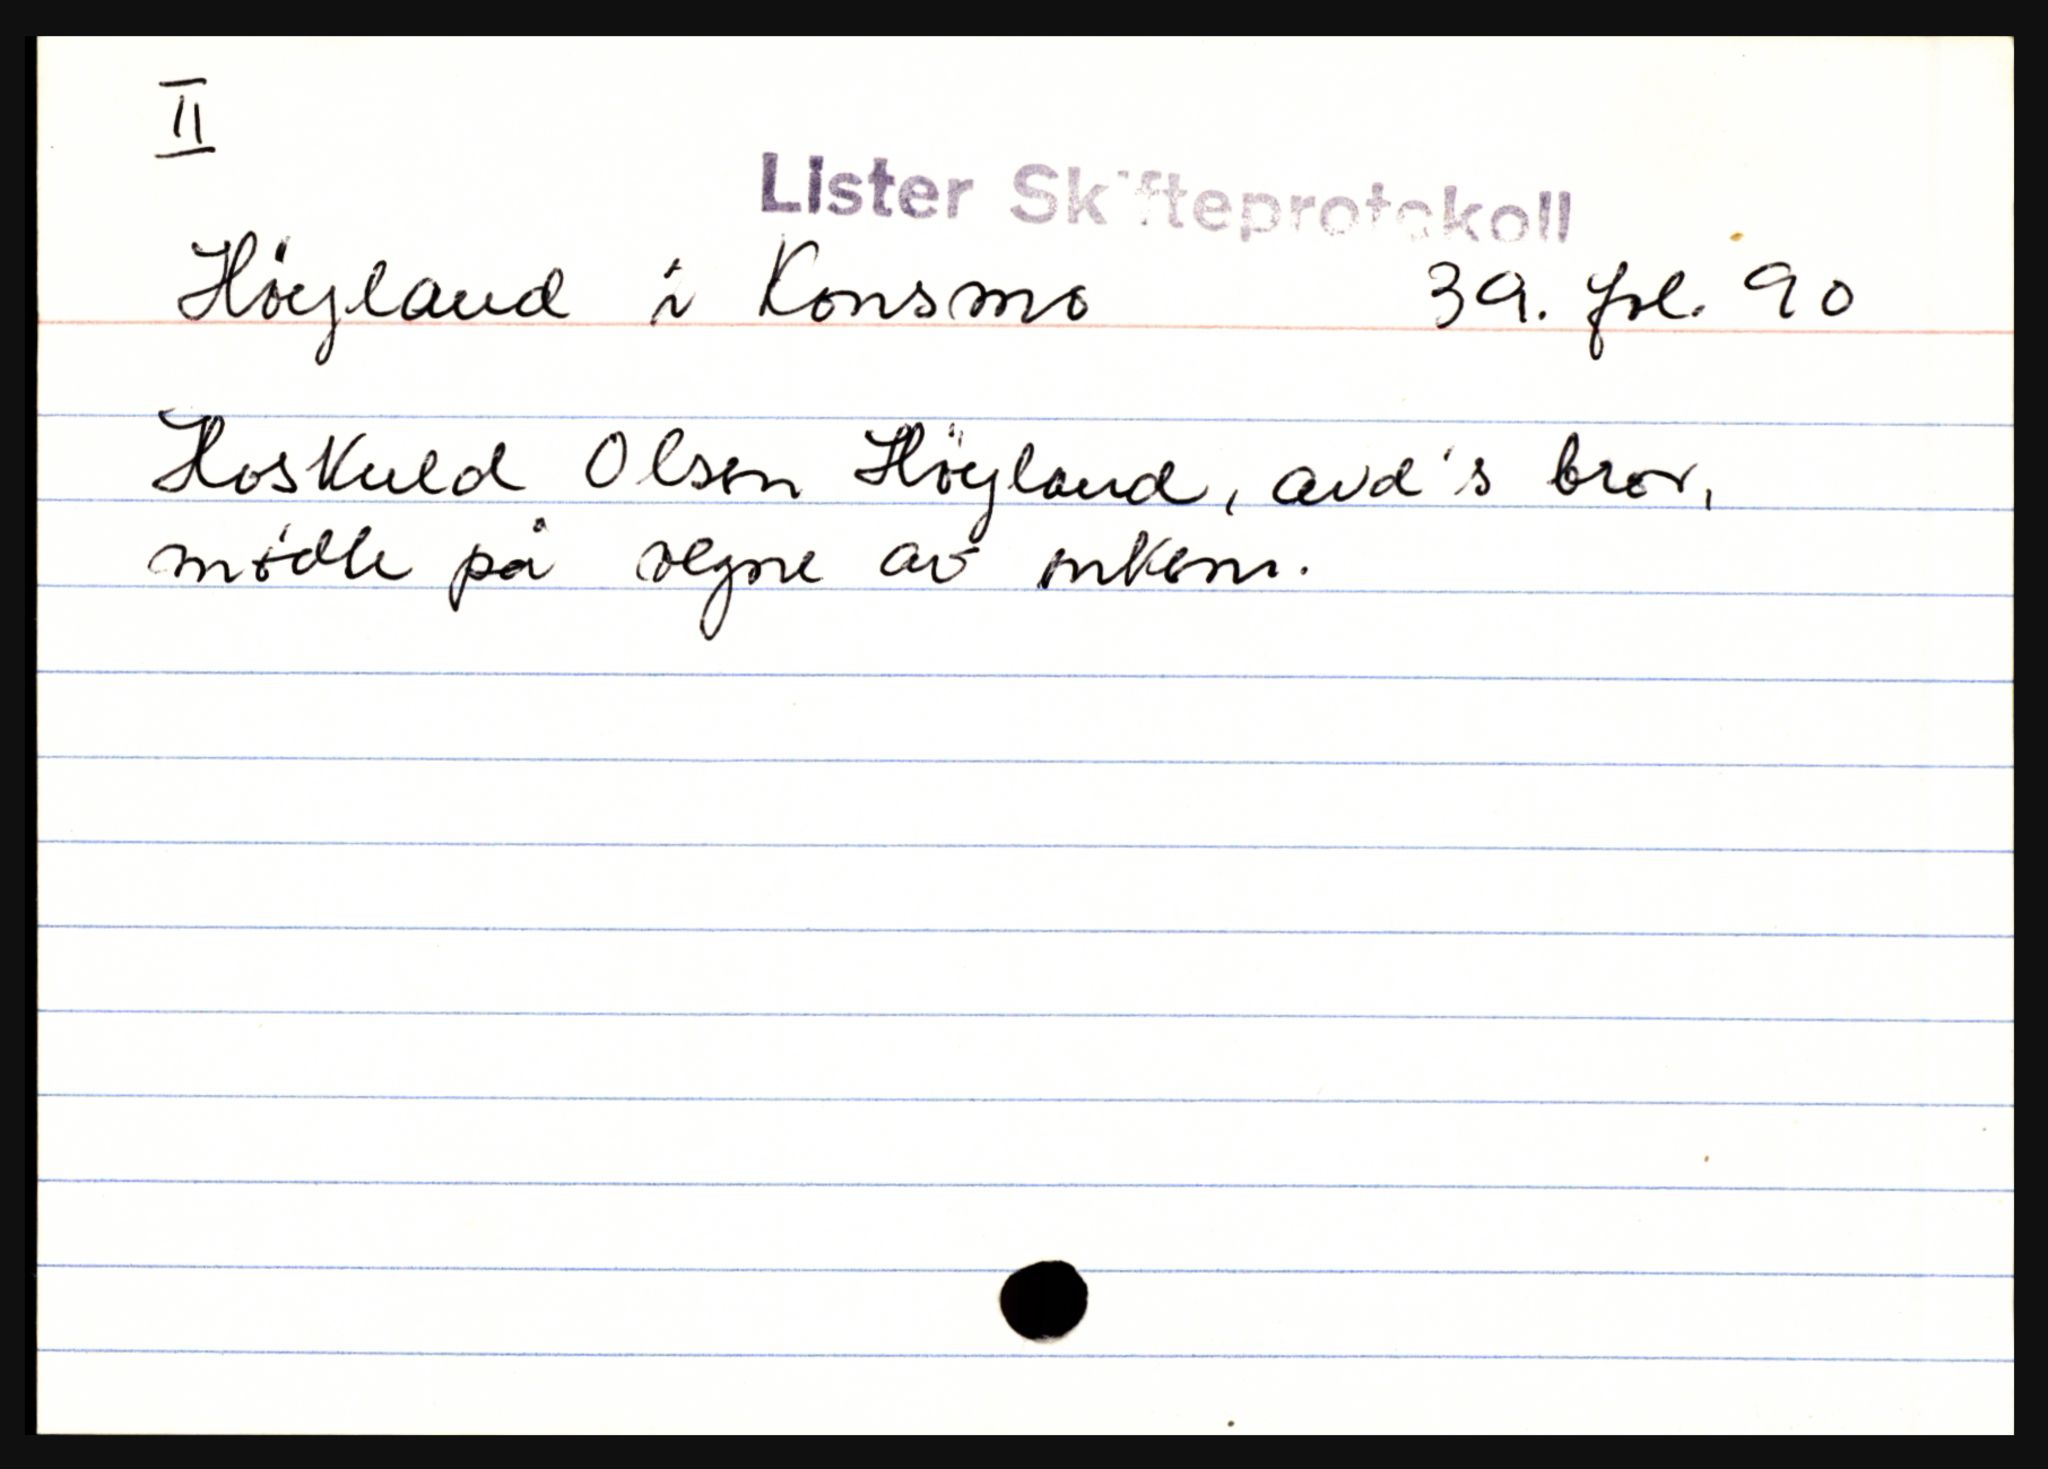 II
Lister Skifteprotokoll
Höyland i Konsmo 39. fol. 90
Hoskuld Olsen Höyland, avd's bror,
mødte på vegne av enken.